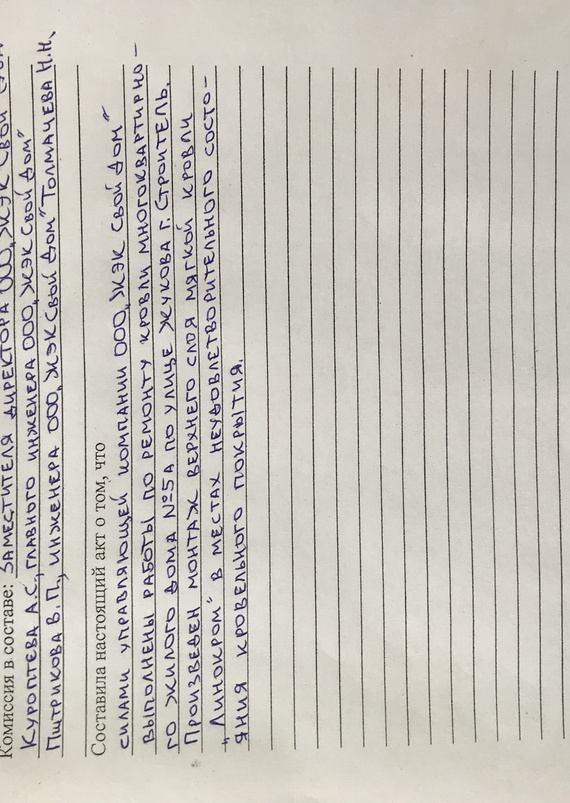 Комиссия в составе: Заместителя директора ООО „ЖЭК Свой Дом"
Куроптева А.С., главного инженера ООО „ЖЭК Свой Дом"
Пштрикова В.П., инженера ООО „ЖЭК Свой Дом" Толмачева Н.Н.
Составила настоящий акт о том, что
силами управляющей компании ООО „ЖЭК Свой Дом"
выполнены работы по ремонту кровли многоквартирно-
го жилого дома №5а по улице Жукова г. Строитель.
Произведен монтаж верхнего слоя мягкой кровли
„Линокром" в местах неудовлетворительного состо-
яния кровельного покрытия.